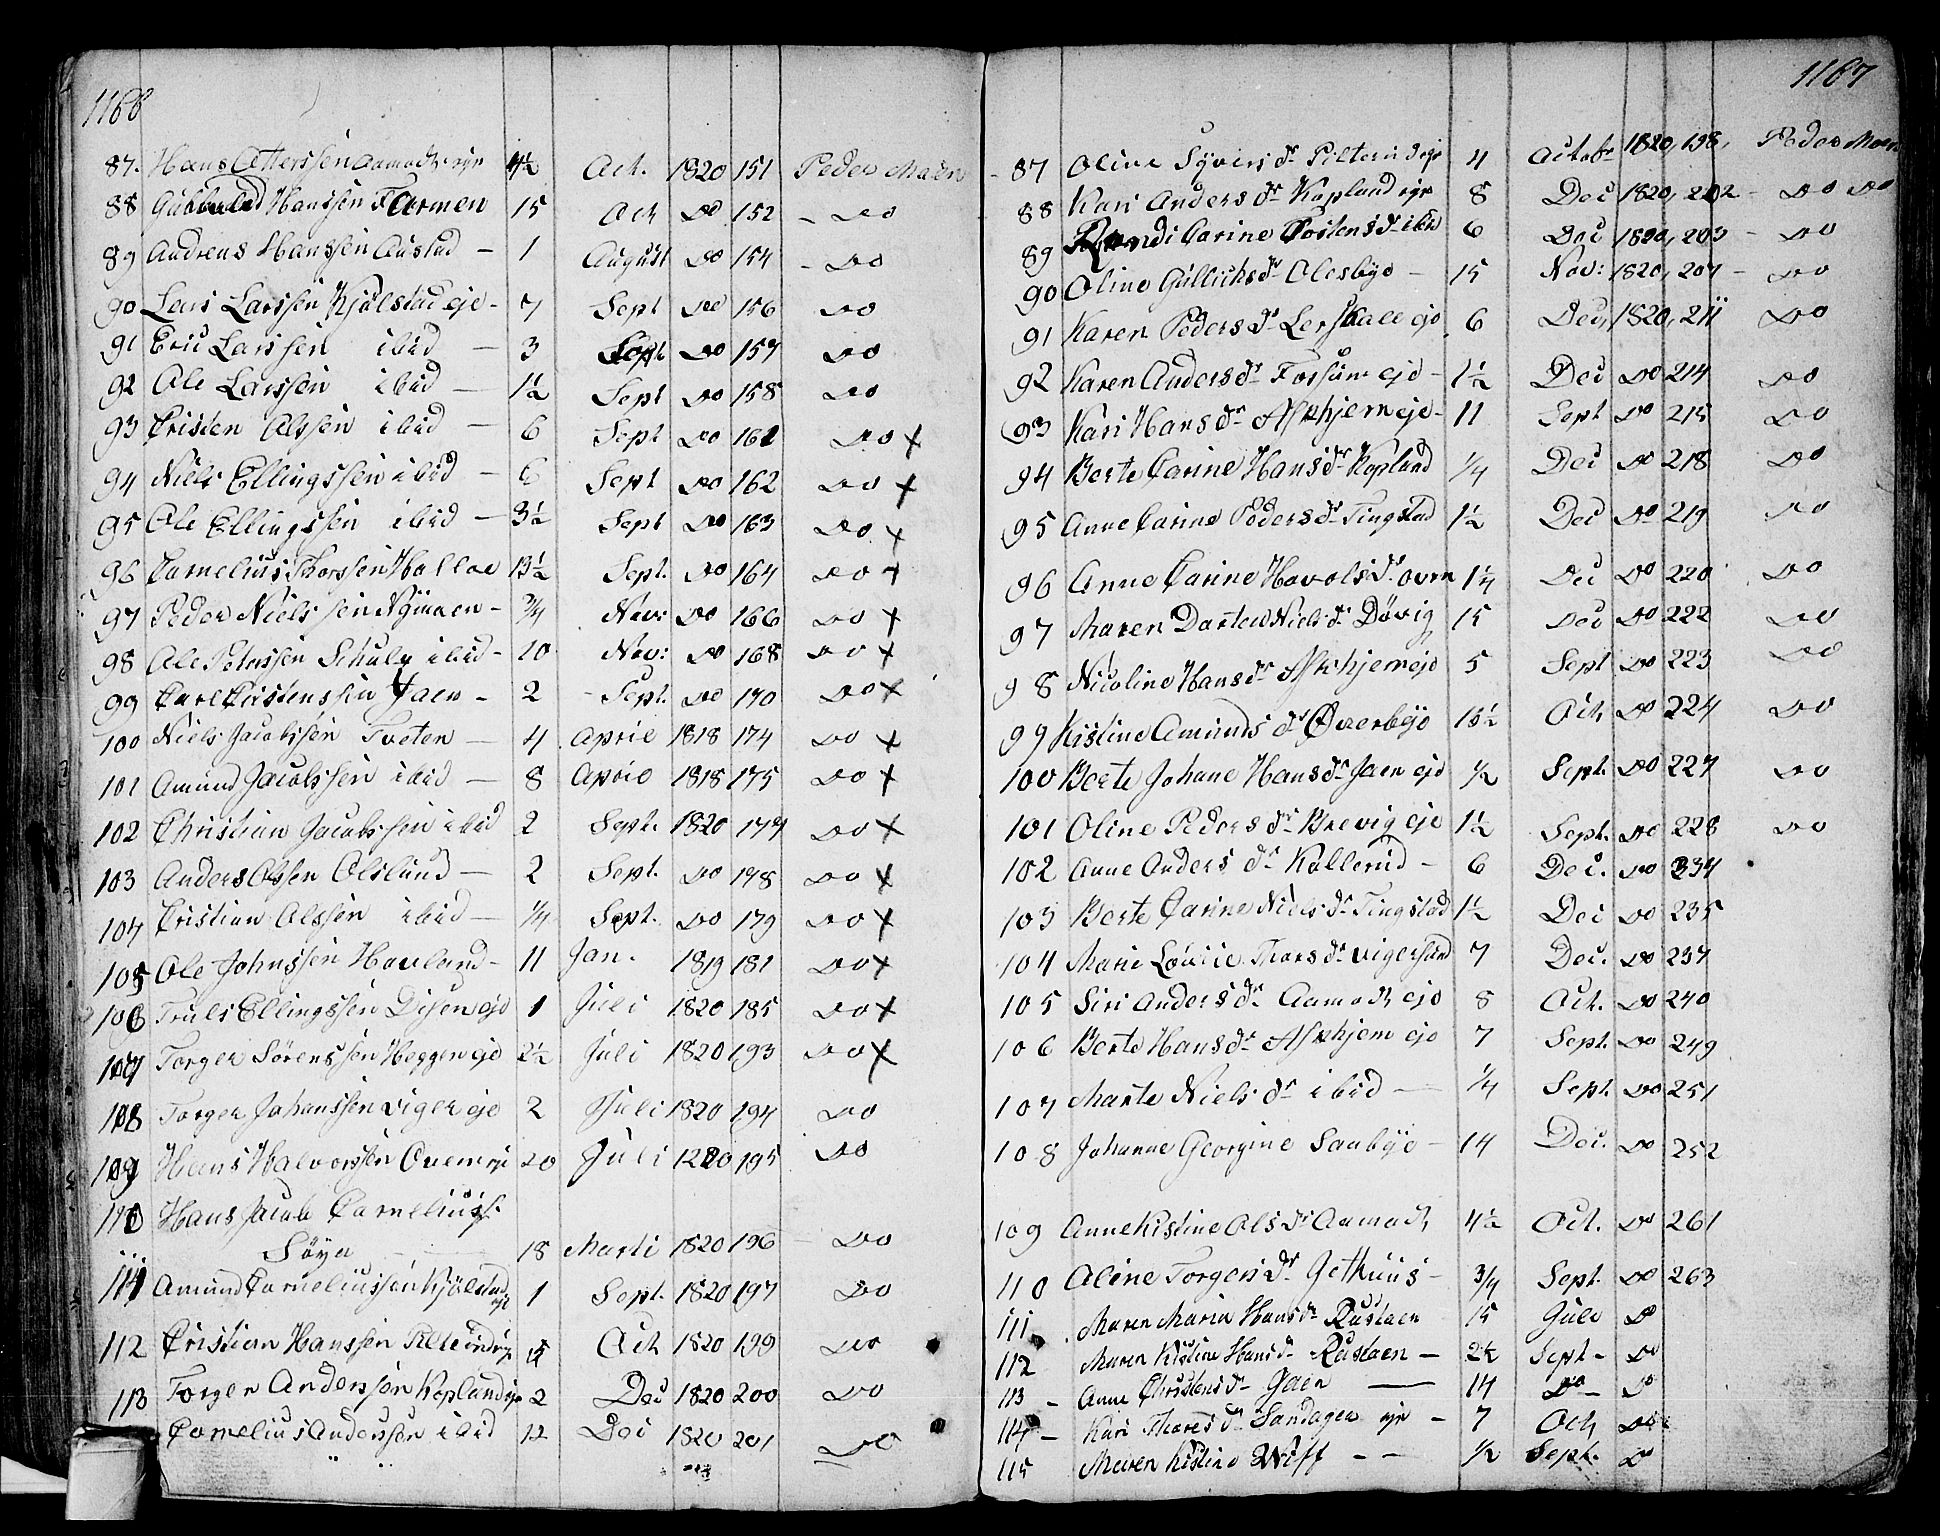 1166
87. Hans Ottersen Aamodt eje 4½ Oct. 1820 151 Peder Maen
88 Gulbrand Hanssen Formen 15 Oct Do 152 - Do
89 Andreas Hanssen Austad - 1 August Do 154 - Do
90 Lars Larssen Kjølstad eje - 7 Sept Do 156 Do
91 Eric Larssen ibid - 3 Sept Do 157 Do
92 Ole Larssen ibid - 1½ Sept Do 158 Do
93 Cristen Olssen ibid - 6 Sept Do 161 Do x
94 Niels Ellingssen ibid - 6 Sept Do 162 Do x
95 Ole Ellingssen ibid - 3½ Sept Do 163 Do x
96 Cornelius Thorssen Holloe 13½ Sept. Do 164 Do x
97 Peder Nielssen Nÿmoen - ¾ Nov: Do 166 Do x
98 Ole Peterssen Schulz ibid - 10 Nov: Do 168 Do x
99 Carl Cristenssen Jaen - 2 - Sept. Do 170 Do x
100 Niels Jacobssen Tveten - 4 April 1818 174 Do x
101 Amund Jacobssen ibid - 8 April 1818 175 Do x
102 Christian Jacobssen ibid 2 Sept. 1820 177 Do x
103 Anders Olssen Olslund - 2 Sept. Do 178 Do x
104 Cristian Olssen ibid - ¼ Sept. Do 179 Do x
105 Ole Johnssen Hovland - 11 Jan. 1819 181 Do x
106 Truls Ellingssen Disen eje 1 Juli 1820 185 Do x
107 Torger Sörenssen Heggen eje 2½ Juli 1820 193 Do x
108 Torger Johanssen Viger eje 2 Juli 1820 194 Do
109 Hans Halvorssen Overn eje 20 Juli 1820 195 Do
110 Hans Jacob Corneliuss.
Söya - 18 Marti 1820 196 - Do
111 Amund Corneliussen Kjölstad eje 1 Sept. 1820 197 Do
112 Cristian Hanssen Pilterud eje Oct 1820 199 Do
113 Torger Anderssen Kopland eje 2 Dec 1820 200 Do
Cornelius Anderssen ibid 12 Dec 1820 201 Do
1167
87 Oline Syvers dr Pilterud eje 4 Octobr 1820, 198, Peder Moen
88 Kari Anders dr Kopland eje 8 Dec 1820, 202 - Do Do
89 Randi Carine Tostens dr ibid 6 Dec 1820, 203 - Do
90 Oline Gullichs dr Olesbye - 15 Nov: 1820, 207 - Do
91 Karen Peders dr Lerskall eje 6 Dec, 1820, 211 Do
92 Karen Anders dr Forsum eje - 1½ Dec Do 214 Do
93 Kari Hans dr Askhjem eje - 11 Sept Do 215 Do
94 Berte Carine Hans dr Kopland ¼ Dec Do 218 Do
95 Anne Carine Peders dr Tingstad 1½ Dec Do 219 Do
96 Anne Carine Hovols dr Overn 1¼ Dec Do 220 Do
97 Maren Dortea Niels dr Dövig 15 Dec Do 222 Do
98 Nicoline Hans dr Askhjem eje 5 Sept Do 223 Do
99 Kistine Amunds dr Overbye 15½ Oct, Do 224 Do
100 Berte Johane Hans dr Jaen eje ½ Sept. Do 227 Do
101 Oline Peders dr Brevig eje 1½ Sept. Do 228 Do
102 Anne Anders dr Kollerud - 6 Dec. Do 234
103 Berte Carine Niels dr Tingstad 1½ Dec Do 235
104 Marie Lovise Thors dr Vigersund 7 Dec. Do 237
105 Siri Anders dr Aamodt eje 8 Oct. Do 240
106 Berte Hans dr Askhjem eje 7 Sept. Do 249
107 Marte Niels dr ibid - ¼ Sept. Do 251
108 Johanne Georgine Saabye - 14 Dec. Do 252
109 Anne Kistine Ols dr Aamodt 4½ Oct. Do 261
110 Oline Torgers dr Gethuus - ¾ Sept. Do 263
111 Maren Maria Hans dr Rustaen 15 Jule Do
112 Maren Kistine Hans dr Rustaen - 2½ Sept - Do
113 - Anne Christens dr Jaen - 14 Do - Do
114 - Kari Thores dr Sandager eje - 7 Oct, Do
115 Maren Kistine Wiff - - ½ Sept. Do